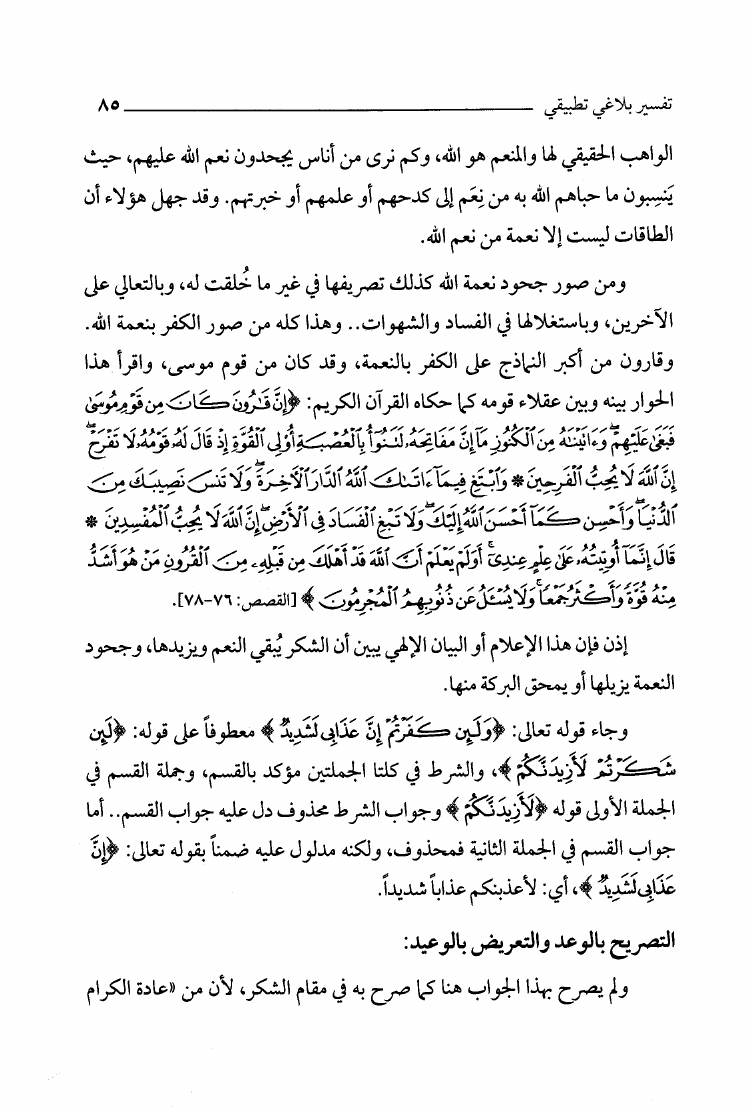 تفسير بلاغي تطبيقي ٨٥
الواهب الحقيقي لها والمنعم هو الله، وكم نرى من أناس يجحدون نعم الله عليهم، حيث
يَنسِبون ما حباهم الله به من نِعَم إلى كدحهم أو علمهم أو خبرتهم. وقد جهل هؤلاء أن
الطاقات ليست إلا نعمة من نعم الله.
ومن صور جحود نعمة الله كذلك تصريفها في غير ما خُلقت له، وبالتعالي على
الآخرين، وباستغلالها في الفساد والشهوات.. وهذا كله من صور الكفر بنعمة الله.
وقارون من أكبر النماذج على الكفر بالنعمة، وقد كان من قوم موسى، واقرأ هذا
الحوار بينه وبين عقلاء قومه كما حكاه القرآن الكريم: ﴿إِنَّ قَٰرُونَ كَانَ مِن قَوْمِ مُوسَىٰ
فَبَغَىٰ عَلَيْهِمْ ۖ وَءَاتَيْنَٰهُ مِنَ ٱلْكُنُوزِ مَآ إِنَّ مَفَاتِحَهُۥ لَتَنُوٓأُ بِٱلْعُصْبَةِ أُو۟لِى ٱلْقُوَّةِ إِذْ قَالَ لَهُۥ قَوْمُهُۥ لَا تَفْرَحْ ۖ
إِنَّ ٱللَّهَ لَا يُحِبُّ ٱلْفَرِحِينَ * وَٱبْتَغِ فِيمَآ ءَاتَىٰكَ ٱللَّهُ ٱلدَّارَ ٱلْءَاخِرَةَ ۖ وَلَا تَنسَ نَصِيبَكَ مِنَ
ٱلدُّنْيَا ۖ وَأَحْسِن كَمَآ أَحْسَنَ ٱللَّهُ إِلَيْكَ ۖ وَلَا تَبْغِ ٱلْفَسَادَ فِى ٱلْأَرْضِ ۖ إِنَّ ٱللَّهَ لَا يُحِبُّ ٱلْمُفْسِدِينَ *
قَالَ إِنَّمَآ أُوتِيتُهُۥ عَلَىٰ عِلْمٍ عِندِىٓ ۚ أَوَلَمْ يَعْلَمْ أَنَّ ٱللَّهَ قَدْ أَهْلَكَ مِن قَبْلِهِۦ مِنَ ٱلْقُرُونِ مَنْ هُوَ أَشَدُّ
مِنْهُ قُوَّةً وَأَكْثَرُ جَمْعًا ۚ وَلَا يُسْـَٔلُ عَن ذُنُوبِهِمُ ٱلْمُجْرِمُونَ﴾ [القصص: ٧٦-٧٨].
إذن فإن هذا الإعلام أو البيان الإلهي يبين أن الشكر يُبقي النعم ويزيدها، وجحود
النعمة يزيلها أو يمحق البركة منها.
وجاء قوله تعالى: ﴿وَلَئِن كَفَرْتُمْ إِنَّ عَذَابِى لَشَدِيدٌ﴾ معطوفاً على قوله: ﴿لَئِن
شَكَرْتُمْ لَأَزِيدَنَّكُمْ﴾، والشرط في كلتا الجملتين مؤكد بالقسم، وجملة القسم في
الجملة الأولى قوله ﴿لَأَزِيدَنَّكُمْ﴾ وجواب الشرط محذوف دل عليه جواب القسم.. أما
جواب القسم في الجملة الثانية فمحذوف، ولكنه مدلول عليه ضمناً بقوله تعالى: ﴿إِنَّ
عَذَابِى لَشَدِيدٌ﴾، أي: لأعذبنكم عذاباً شديداً.
التصريح بالوعد والتعريض بالوعيد:
ولم يصرح بهذا الجواب هنا كما صرح به في مقام الشكر، لأن من «عادة الكرام